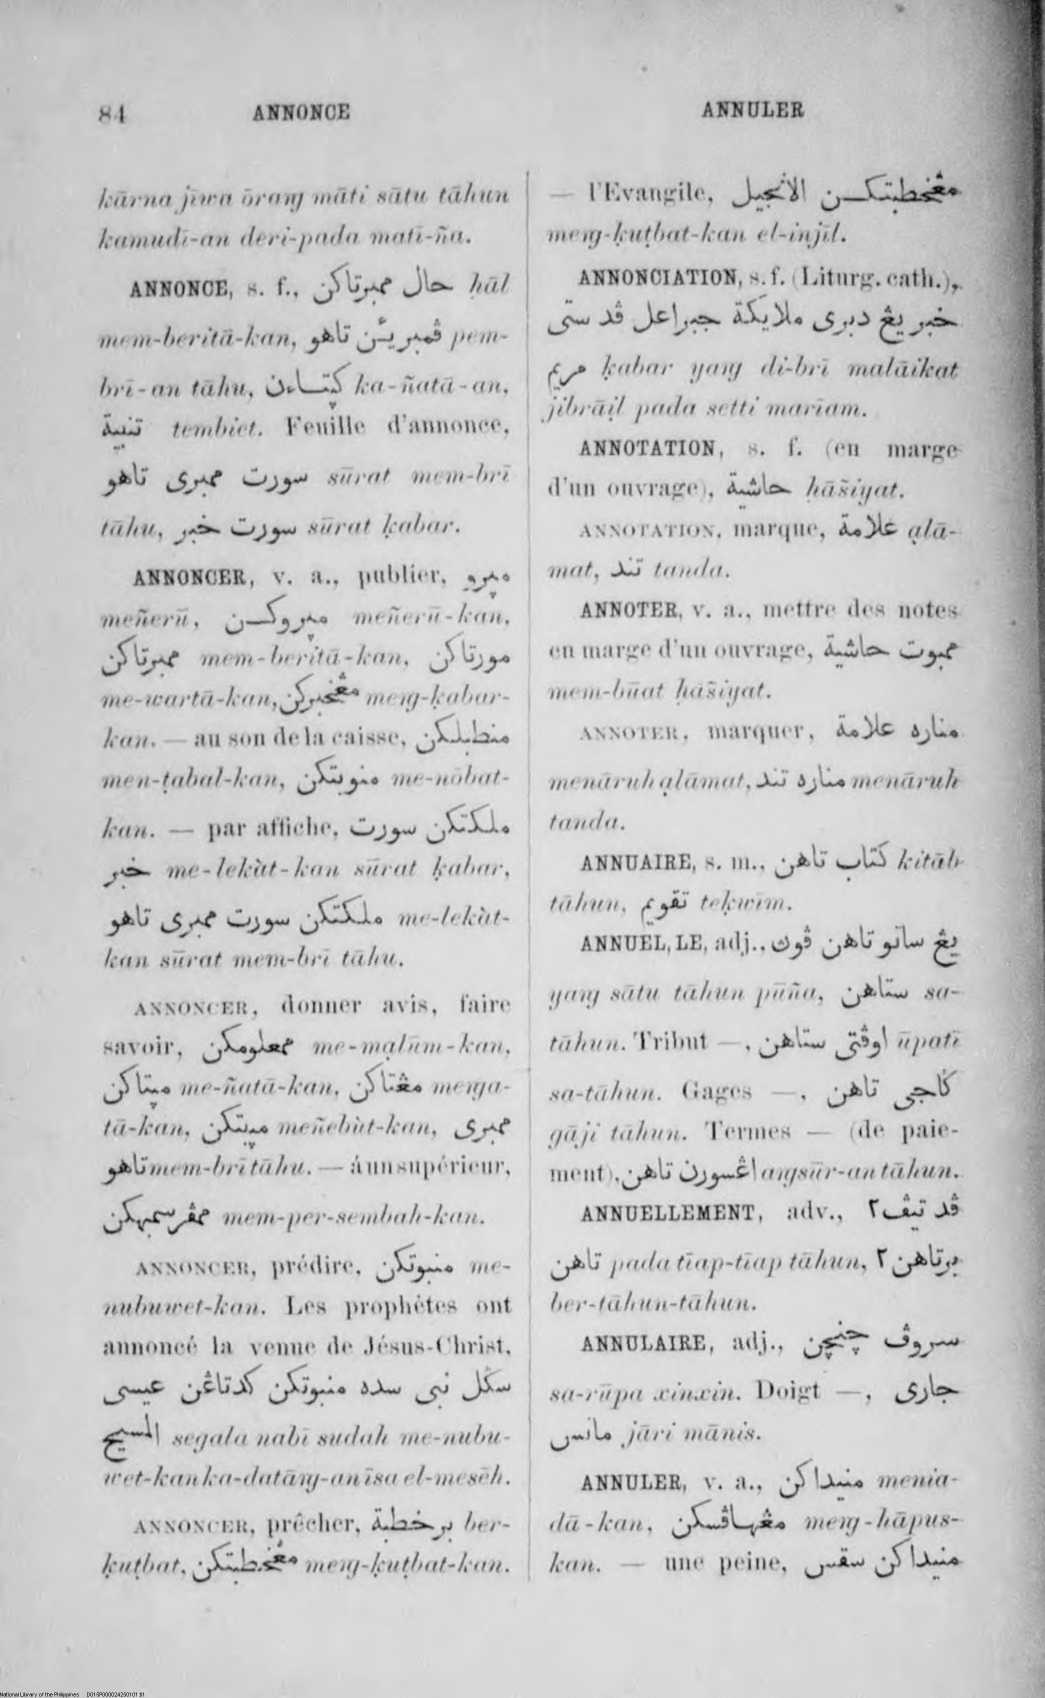 84 ANNONCE ANNULER
kārna jīwa ōraŋ māti sātu tāhun
kamudī-an deri-pada matī-ña.
ANNONCE, s. f., حال ممبرتاكن ḥāl
mem-beritā-kan, ڤمبريئن تاهو pem-
brī-an tāhu, ka-ñatā-an,
تنبية tembiet. Feuille d'annonce,
سورت ممبرى تاهو sūrat mem-brī
tāhu, سورت خبر sūrat ḳabar.
ANNONCER, v. a., publier,
meñerū, meñerū-kan,
ممبرتاكن mem-beritā-kan, مورتاكن
me-wartā-kan, مڠخبركن meŋ-ḳabar-
kan. — au son de la caisse, منطبلكن
men-ṭabal-kan, منوبتكن me-nōbat-
kan. — par affiche, ملكتكن سورت
خبر me-lekàt-kan sūrat ḳabar,
ملكتكن سورت ممبرى تاهو me-lekàt-
kan sūrat mem-brī tāhu.
ANNONCER, donner avis, faire
savoir, ممعلومكن me-mạlūm-kan,
me-ñatā-kan, مڠتاكن meŋa-
tā-kan, meñebùt-kan, ممبرى
تاهو mem-brī tāhu. — à un supérieur,
ممڤرسمبهكن mem-per-sembah-kan.
ANNONCER, prédire, منبوتكن me-
nubuwet-kan. Les prophètes ont
annoncé la venue de Jésus-Christ,
سڬل نبى سده منبوتكن كدتاڠن عيسى
المسيح segala nabī sudah me-nubu-
wet-kan ka-datāŋ-an īsa el-mesēh.
ANNONCER, prêcher, برخطبة ber-
ḳuṭbat, مڠخطبتكن meŋ-ḳuṭbat-kan.
— l'Evangile, مڠخطبتكن الانجيل
meŋ-ḳuṭbat-kan el-injīl.
ANNONCIATION, s. f. (Liturg. cath.),
خبر يڠ دبرى ملايكة جبراعل ڤد ستى
مريم ḳabar yaŋ di-brī malāikat
jibrāịl pada setti mariam.
ANNOTATION, s. f. (en marge
d'un ouvrage), حاشية ḥāšiyat.
ANNOTATION, marque, علامة ạlā-
mat, تند tanda.
ANNOTER, v. a., mettre des notes
en marge d'un ouvrage, ممبوت حاشية
mem-būat ḥāšiyat.
ANNOTER, marquer, مناره علامة
menāruh ạlāmat, مناره تند menāruh
tanda.
ANNUAIRE, s. m., كتاب تاهن kitāb
tāhun, تقويم teḳwīm.
ANNUEL, LE, adj., يڠ ساتو تاهن ڤوڽ
yaŋ sātu tāhun pūña, ستاهن sa-
tāhun. Tribut —, اوڤتى ستاهن ūpatī
sa-tāhun. Gages —, ڬاجى تاهن
gāji tāhun. Termes — (de paie-
ment), اڠسورن تاهن aŋsūr-an tāhun.
ANNUELLEMENT, adv., ڤد تيڤ٢
تاهن pada tīap-tīap tāhun, برتاهن٢
ber-tāhun-tāhun.
ANNULAIRE, adj., سروڤ چنچن
sa-rūpa xinxin. Doigt —, جارى
مانس jāri mānis.
ANNULER, v. a., منيداكن menia-
dā-kan, مڠهاڤسكن meŋ-hāpus-
kan. — une peine, منيداكن سقس
National Library of the Philippines